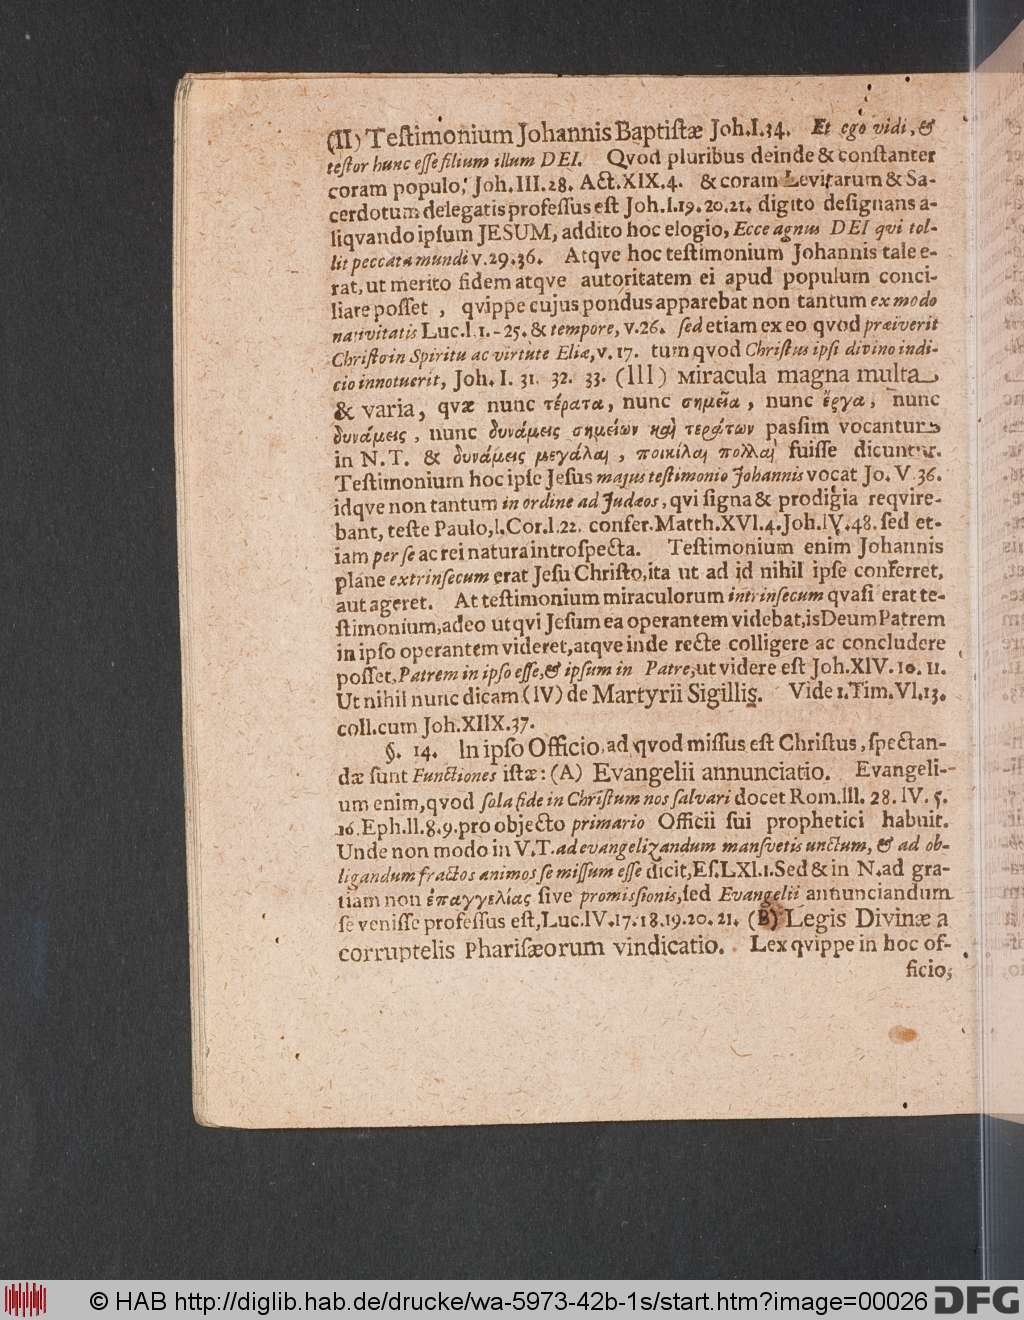 (II) Teſtimonium Johannis Baptiſtæ Joh.I.34. Et ego vidi, &
teſtor hunc eſſe filium illum DEI. Qvod pluribus deinde & conſtanter
coram populo, Joh.III.28. Act.XIX.4. & coram Levitarum & Sa-
cerdotum delegatis profeſſus eſt Joh.I.19.20.21. digito deſignans a-
liqvando ipſum JESUM, addito hoc elogio, Ecce agnus DEI qvi tol-
lit peccata mundi v.29.36. Atqve hoc teſtimonium Johannis tale e-
rat, ut merito fidem atqve autoritatem ei apud populum conci-
liare poſſet, qvippe cujus pondus apparebat non tantum ex modo
nativitatis Luc.I.1.-25. & tempore, v.26. ſed etiam ex eo qvod præiverit
Chriſto in Spiritu ac virtute Eliæ, v. 17. tum qvod Chriſtus ipſi divino indi-
cio innotuerit, Joh. I. 31. 32. 33. (III) Miracula magna multa
& varia, qvæ nunc τέρατα, nunc σημεῖα, nunc ἔργα, nunc
δυνάμεις, nunc δυνάμεις σημείων καὶ τεράτων paſſim vocantur
in N.T. & δυνάμεις μεγάλαι, ποικίλαι πολλαὶ fuiſſe dicuntur.
Teſtimonium hoc ipſe Jeſus majus teſtimonio Johannis vocat Jo. V. 36.
idqve non tantum in ordine ad Judæos, qvi ſigna & prodigia reqvire-
bant, teſte Paulo, I.Cor.I.22. confer. Matth.XVI.4. Joh.IV.48. ſed et-
iam per ſe ac rei natura introſpecta. Teſtimonium enim Johannis
plane extrinſecum erat Jeſu Chriſto, ita ut ad id nihil ipſe conferret,
aut ageret. At teſtimonium miraculorum intrinſecum qvaſi erat te-
ſtimonium, adeo ut qvi Jeſum ea operantem videbat, is Deum Patrem
in ipſo operantem videret, atqve inde recte colligere ac concludere
poſſet, Patrem in ipſo eſſe, & ipſum in Patre, ut videre eſt Joh.XIV. 10. 11.
Ut nihil nunc dicam (IV) de Martyrii Sigillis. Vide 1.Tim.VI.13.
coll. cum Joh.XIIX.37.
§. 14. In ipſo Officio, ad qvod miſſus eſt Chriſtus, ſpectan-
dæ ſunt Functiones iſtæ: (A) Evangelii annunciatio. Evangeli-
um enim, qvod ſola fide in Chriſtum nos ſalvari docet Rom.III. 28. IV. 5.
16. Eph.II.8.9. pro objecto primario Officii ſui prophetici habuit.
Unde non modo in V.T. ad evangelizandum manſvetis unctum, & ad ob-
ligandum fractos animos ſe miſſum eſſe dicit, Eſ.LXI.1. Sed & in N. ad gra-
tiam non ἐπαγγελίας ſive promiſſionis, ſed Evangelii annunciandum
ſe veniſſe profeſſus eſt, Luc.IV.17.18.19.20.21. (B) Legis Divinæ a
corruptelis Phariſæorum vindicatio. Lex qvippe in hoc of-
ficio,
© HAB http://diglib.hab.de/drucke/wa-5973-42b-1s/start.htm?image=00026 DFG